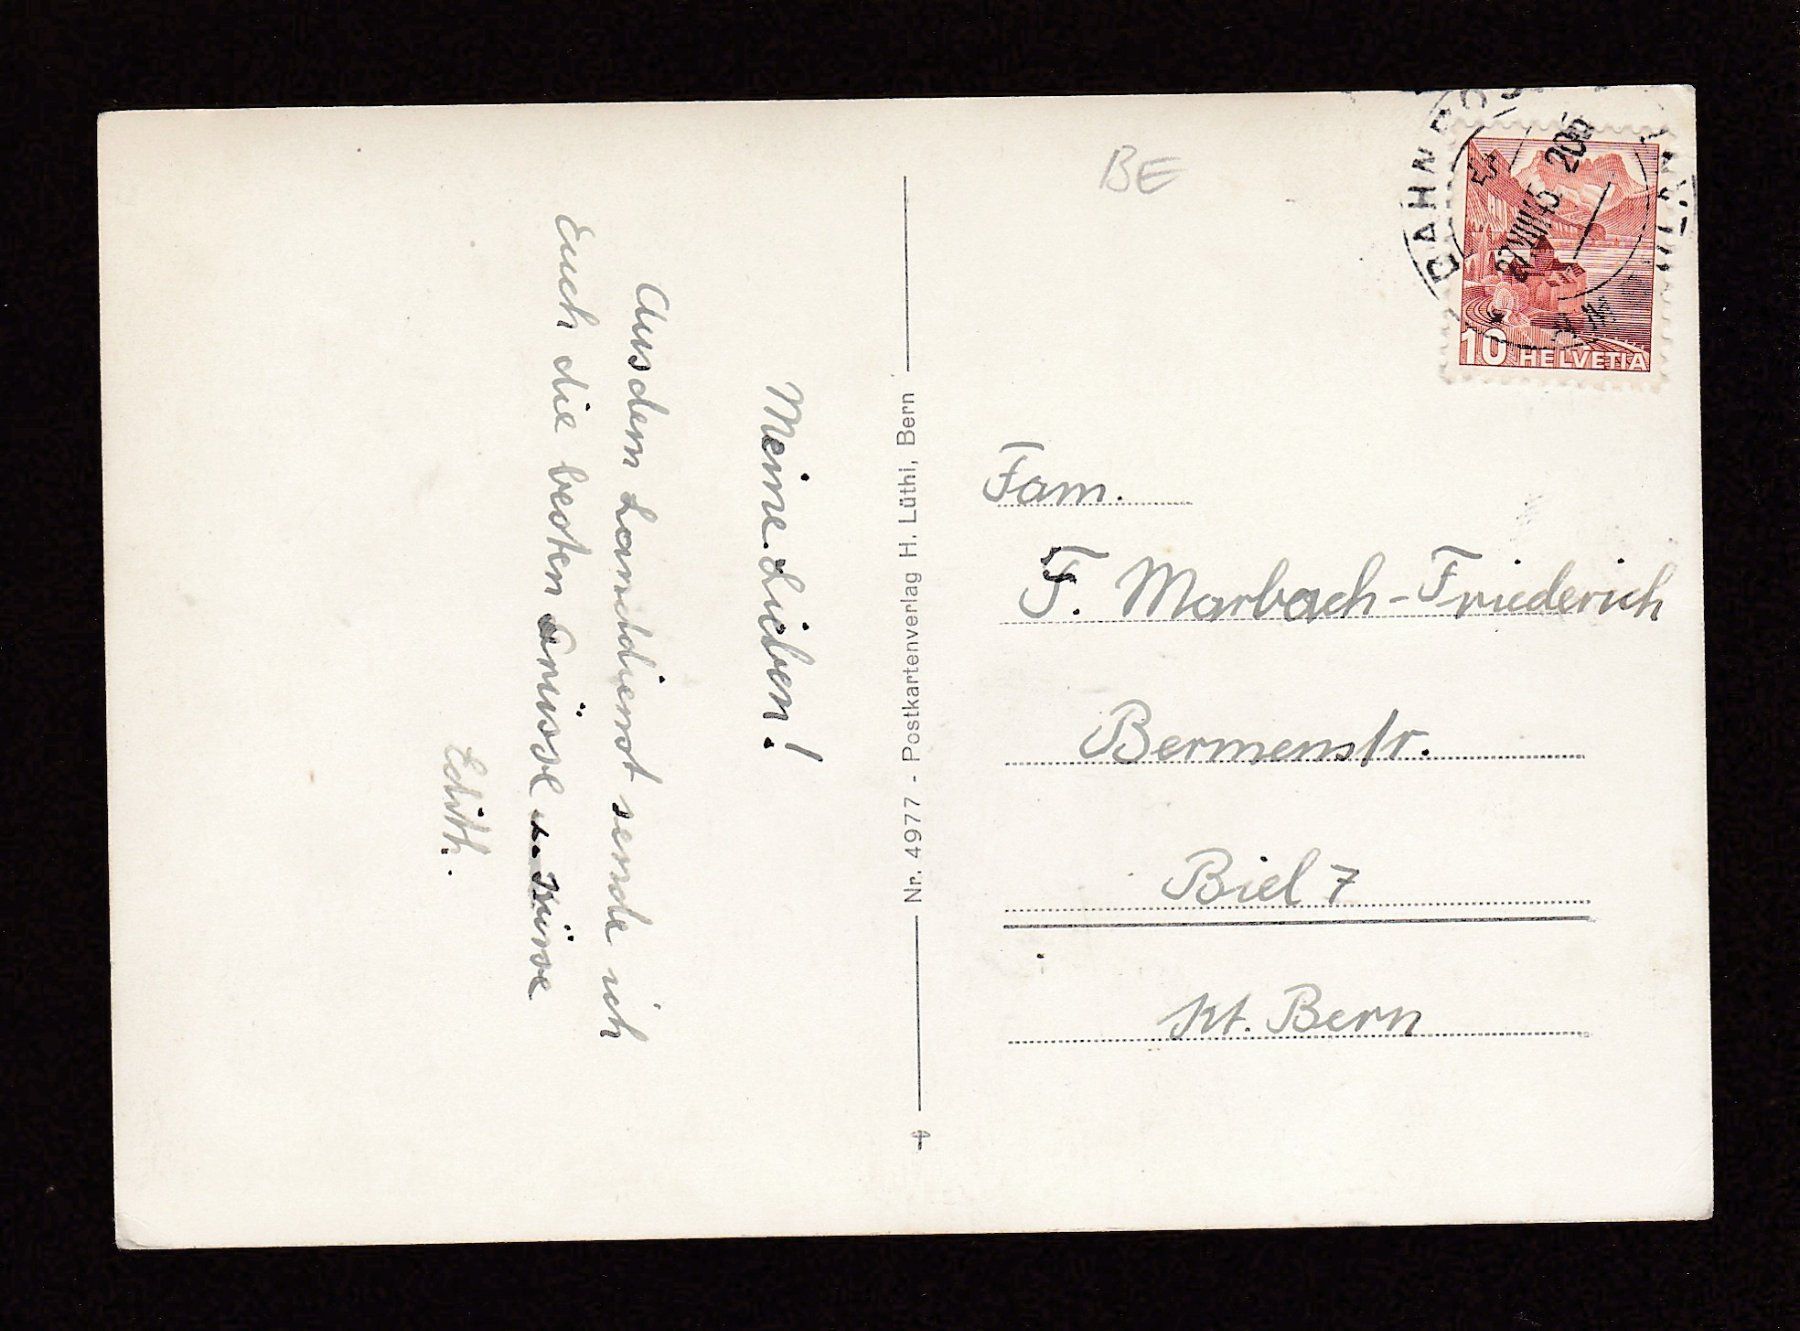 Meine Lieben!
Aus dem Landdienst sende ich
Euch die besten Grüsse u. Küsse
Edith.
Nr. 4977 - Postkartenverlag H. Lüthi, Bern
BE
27.VIII.45 20
10 HELVETIA
Fam.
F. Marbach-Friederich
Bermenstr.
Biel 7
Kt. Bern